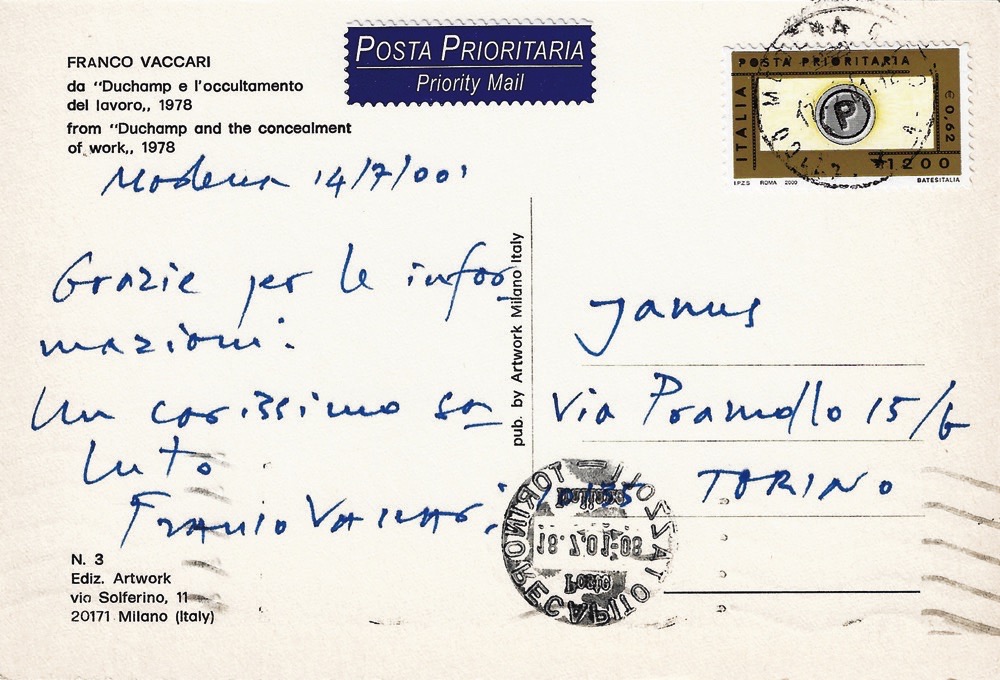 FRANCO VACCARI
da “Duchamp e l'occultamento
del lavoro„, 1978
from “Duchamp and the concealment
of work„, 1978
POSTA PRIORITARIA
Priority Mail
POSTA PRIORITARIA
ITALIA
P
€ 0,62
1200
I.P.Z.S. ROMA 2000
BATESITALIA
Modena 14/7/001
Grazie per le infor
mazioni.
Un carissimo sa
luto
Franco Vaccari
pub. by Artwork Milano Italy
Janus
Via Pramollo 15/6
10135 TORINO
TORINO
18.7.01-08
N. 3
Ediz. Artwork
via Solferino, 11
20171 Milano (Italy)